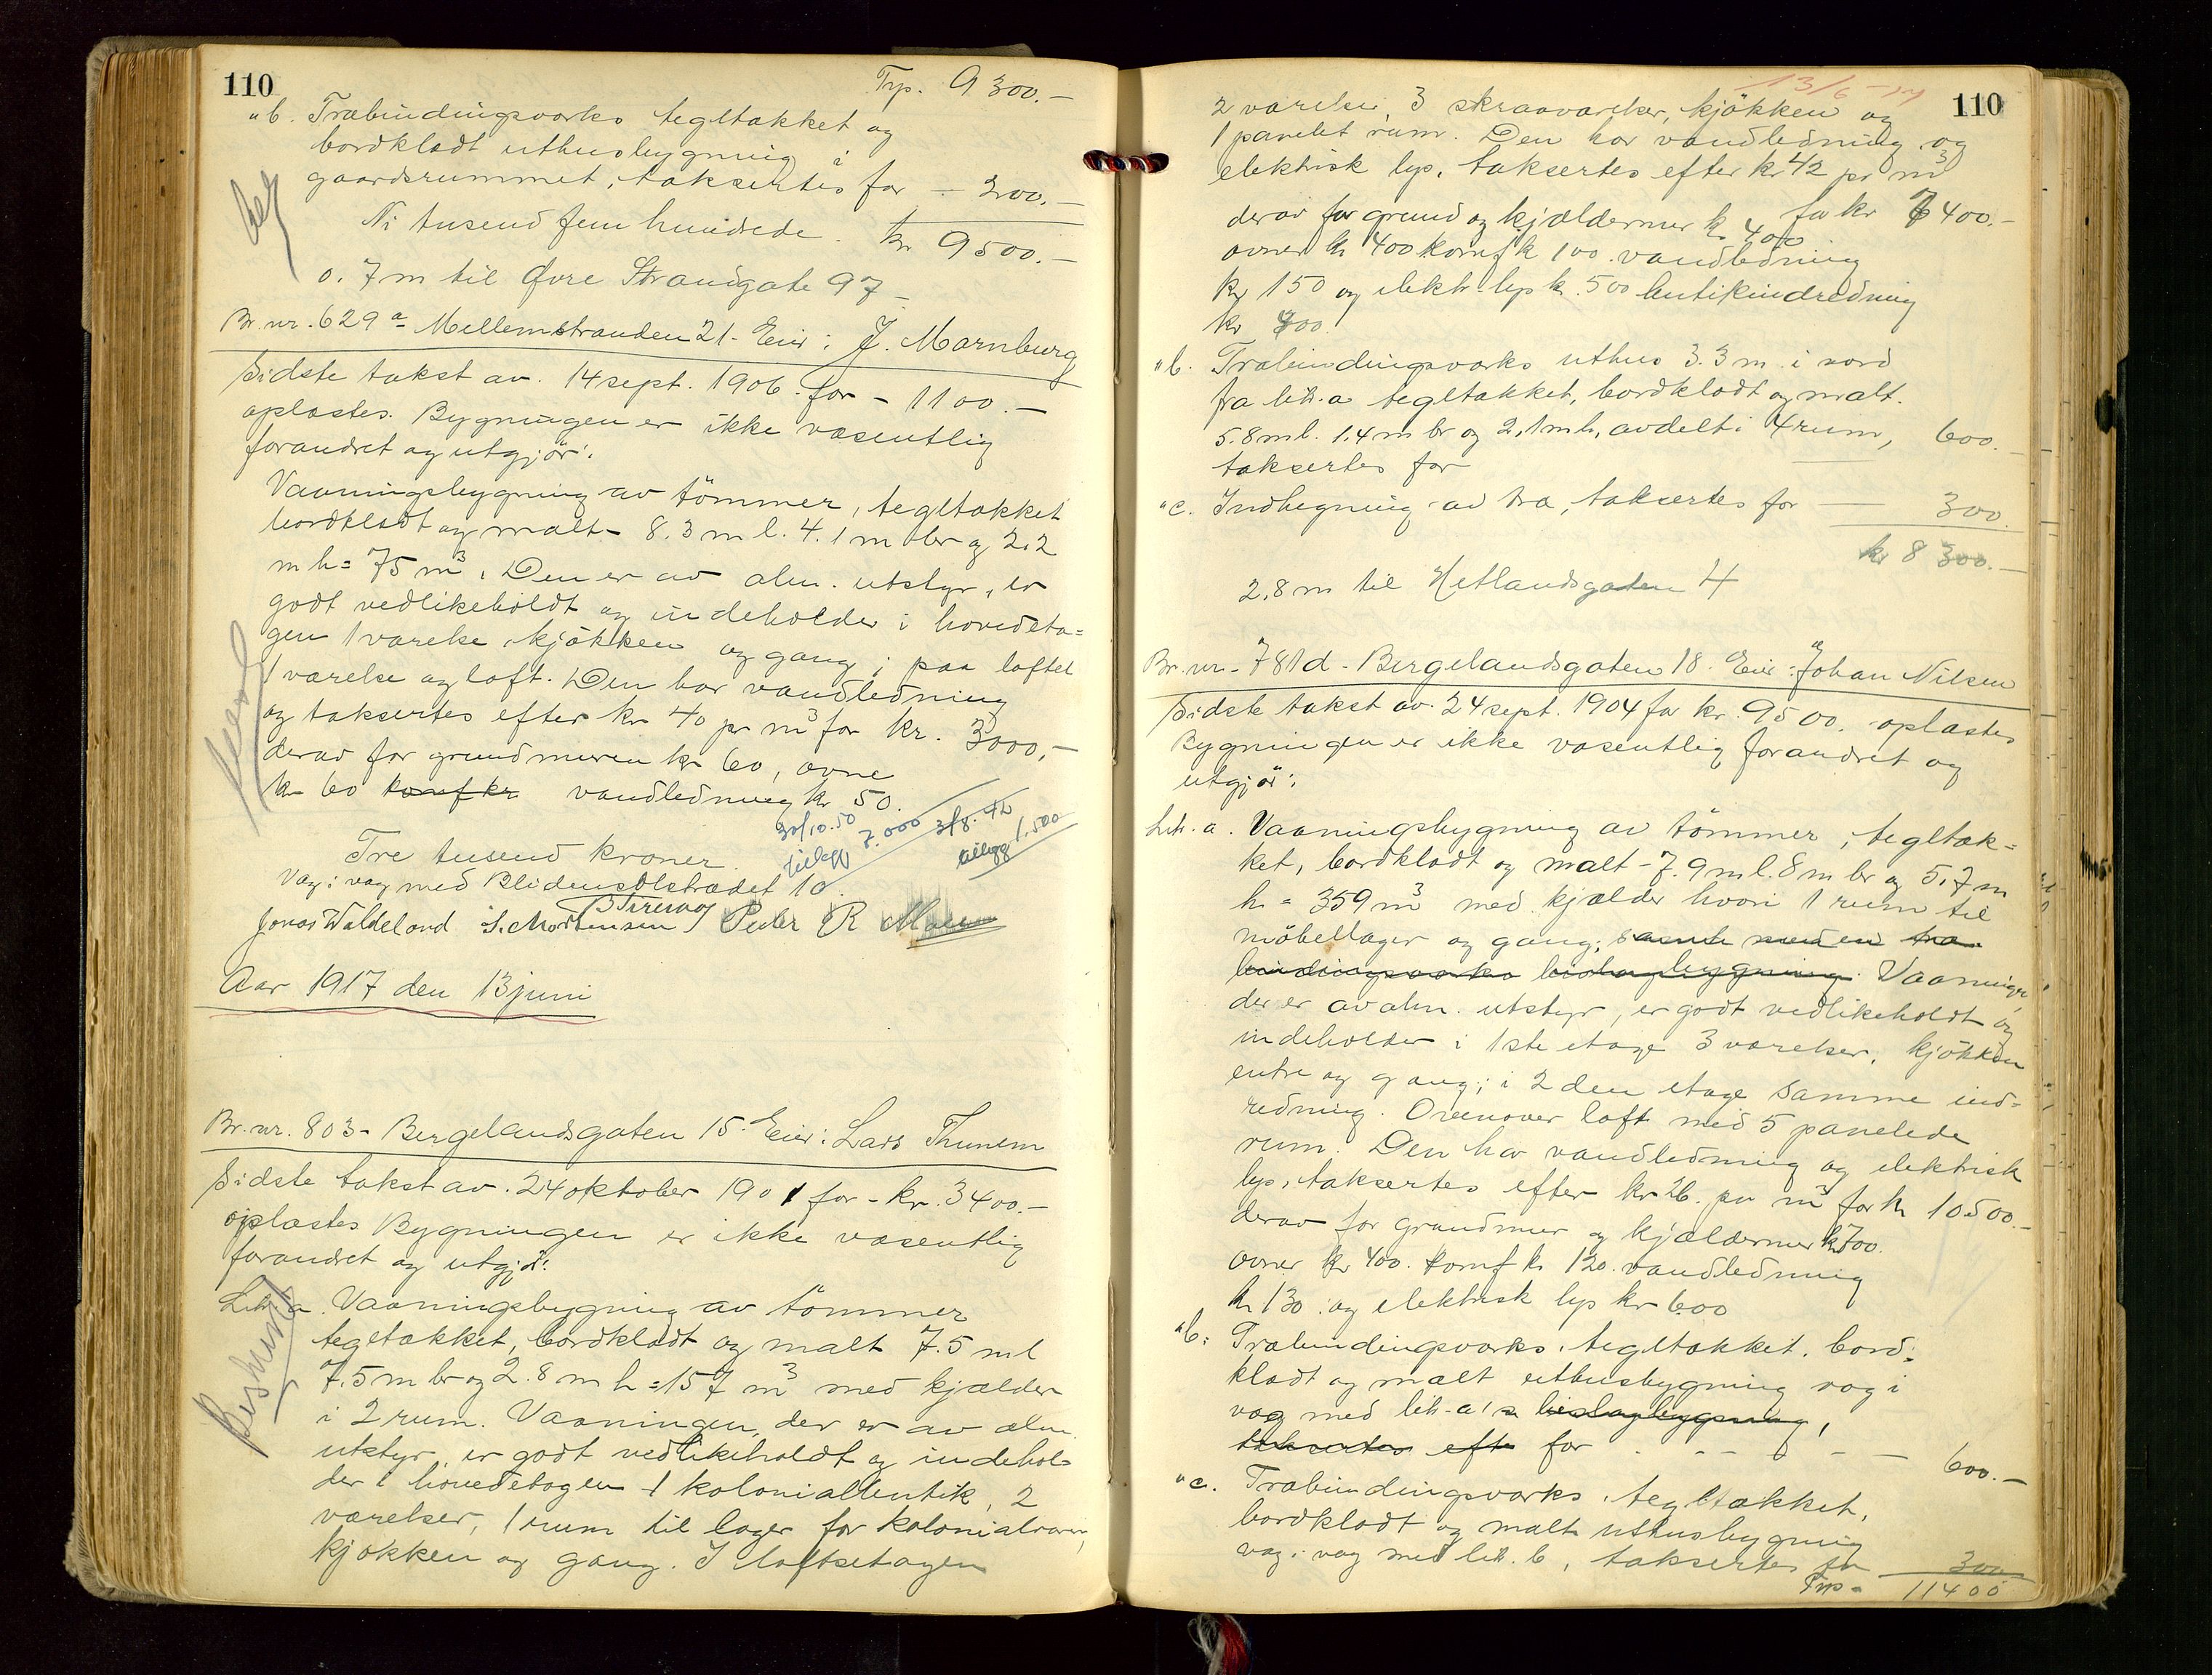 110
Trp. 9300.-
"b. Træbindingsværks tegltækket og
bordklædt uthusbygning i
gaardsrummet, taksertes for - 200.-
Ni tusend fem hundrede. kr 9500.-
0.7 m til Øvre Strandgate 97
Br.nr. 629a - Mellemstranden 21 - Eier: J. Marnburg
Sidste takst av. 14 sept. 1906 for - 1100.-
oplæstes. Bygningen er ikke væsentlig
forandret og utgjør:
Vaaningsbygning av tømmer, tegltækket
bordklædt og malt - 8.3 m l. 4.1 m br og 2.2
m h = 75 m3. Den er av alm. utstyr, er
godt vedlikeholdt og indeholder i hovedeta=
gen 1 værelse kjøkken og gang; paa loftet
1 værelse og loft. Den har vandledning
og taksertes efter kr 40 pr m3 for kr. 3000.-
derav for grundmuren kr 60, ovne
kr 60 komf kr vandledning kr 50.
30/10.50
tillegg 7.000
3/8.42
tillegg 1.500
Tre tusend kroner
Væg i væg med Blidensolstrædet 10.
Jonas Waldeland S. Mortensen Peder R
Aar 1917 den 13 juni
Br.nr. 803 - Bergelandsgaten 15. Eier: Lars Thunem
Sidste takst av. 24 oktober 1901 for - kr. 3400.-
oplæstes Bygningen er ikke væsentlig
forandret og utgjør:
Litr. a. Vaaningsbygning av tømmer
tegltækket, bordklædt og malt 7.5 m l
7.5 m br og 2.8 m h = 157 m3 med kjælder
i 2 rum. Vaaningen, der er av alm.
utstyr, er godt vedlikeholdt og indehol=
der i hovedetagen 1 kolonialbutik, 2
værelser, 1 rum til lager for kolonialvarer,
kjøkken og gang. I loftsetagen
13/6-17
110
2 værelser, 3 skraaværelser, kjøkken og
1 panelet rum. Den har vandledning og
elektrisk lys, taksertes efter kr 42 pr m3
for kr 7400.-
derav for grund og kjældermur kr 400
ovner kr 400 komf kr 100. vandledning
kr 150 og elektr. lys kr. 500 butikindredning
kr 700.
"b. Træbindingsværks uthus 3.3 m. i nord
fra litr. a tegltækket, bordklædt og malt.
5.8 m l. 1.4 m br og 2.1 m h, avdelt i 4 rum,
taksertes for 600.
"c. Indhegning av træ, taksertes for - 300.
kr 8300.-
2.8 m til Hetlandsgaten 4
Br.nr - 781d - Bergelandsgaten 18. Eier: Johan Nilsen
Sidste takst av 24 sept. 1904 for kr. 9500. oplæstes
Bygningen er ikke væsentlig forandret og
utgjør:
Litr. a. Vaaningsbygning av tømmer, tegltæk=
ket, bordklædt og malt - 7.9 m l. 8 m br og 5.7 m
h = 359 m3 med kjælder hvori 1 rum til
møbellager og gang, samt med en træ=
bindingsværks bislagbygning. Vaaningen
der er av alm. utstyr, er godt vedlikeholdt og
indeholder i 1ste etage 3 værelser, kjøkken
entre og gang; i 2den etage samme ind=
redning. Ovenover loft med 5 panelede
rum. Den har vandledning og elektrisk
lys, taksertes efter kr 26. pr m3 for kr 10500.-
derav for grundmur og kjældermur kr 700.
ovner kr 400. komf kr 120. vandledning
kr 130. og elektrisk lys kr 600
"b. Træbindingsværks, tegltækket, bord=
klædt og malt uthusbygning væg i
væg med litr. a's bislagbygning,
taksertes eft for - - - 600.-
"c. Træbindingsværks, tegltækket,
bordklædt og malt uthusbygning
væg i væg med litr. b, taksertes for 300
Trp - 11400